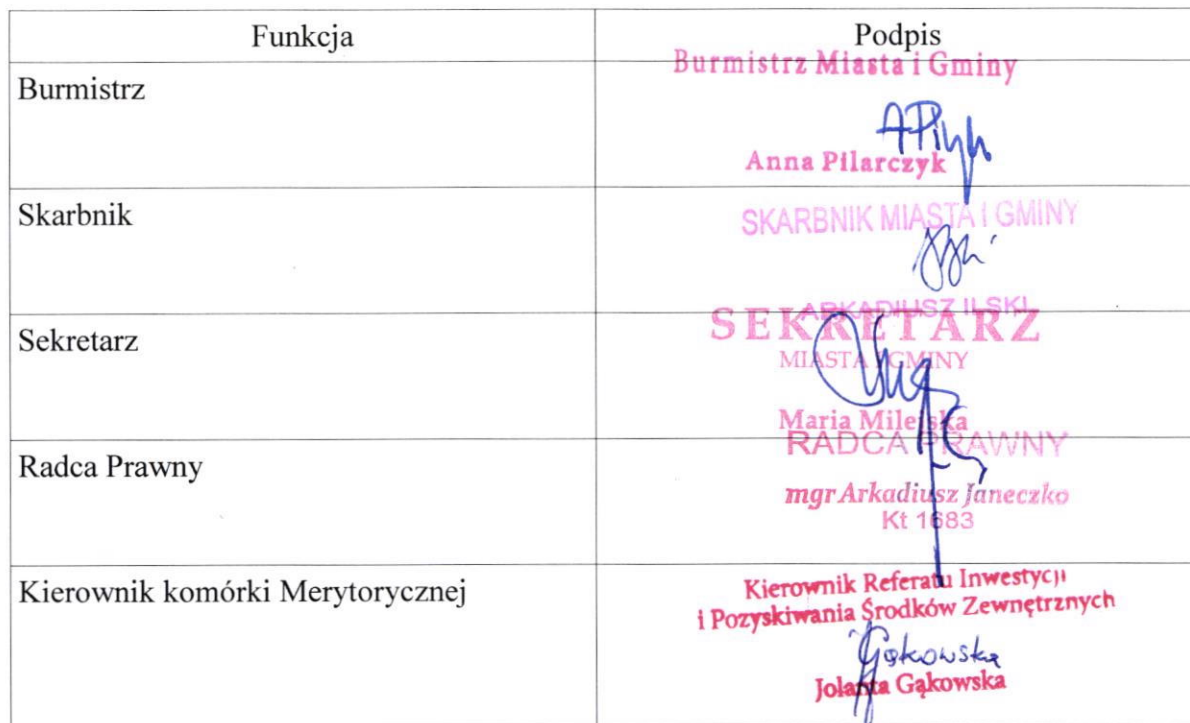 Funkcja
Podpis
Burmistrz
Burmistrz Miasta i Gminy
Anna Pilarczyk
Skarbnik
SKARBNIK MIASTA I GMINY
ARKADIUSZ ILSKI
Sekretarz
SEKRETARZ
MIASTA I GMINY
Maria Milejska
Radca Prawny
RADCA PRAWNY
mgr Arkadiusz Janeczko
Kt 1683
Kierownik komórki Merytorycznej
Kierownik Referatu Inwestycji
i Pozyskiwania Środków Zewnętrznych
Gąkowska
Jolanta Gąkowska